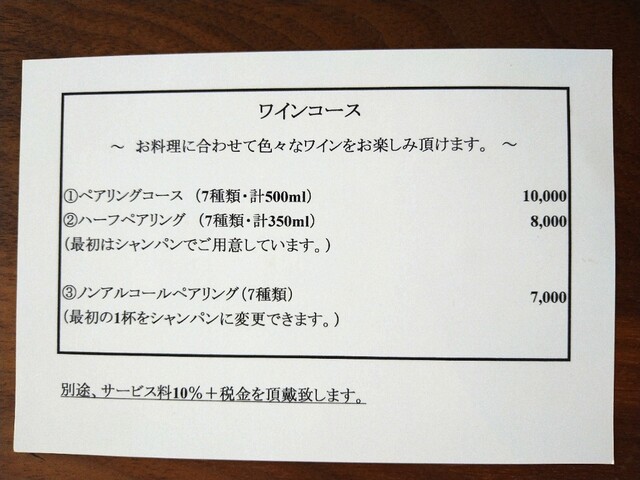 ワインコース
～ お料理に合わせて色々なワインをお楽しみ頂けます。 ～
①ペアリングコース （7種類・計500ml） 10,000
②ハーフペアリング （7種類・計350ml） 8,000
（最初はシャンパンでご用意しています。）
③ノンアルコールペアリング（7種類） 7,000
（最初の1杯をシャンパンに変更できます。）
別途、サービス料10％＋税金を頂戴致します。